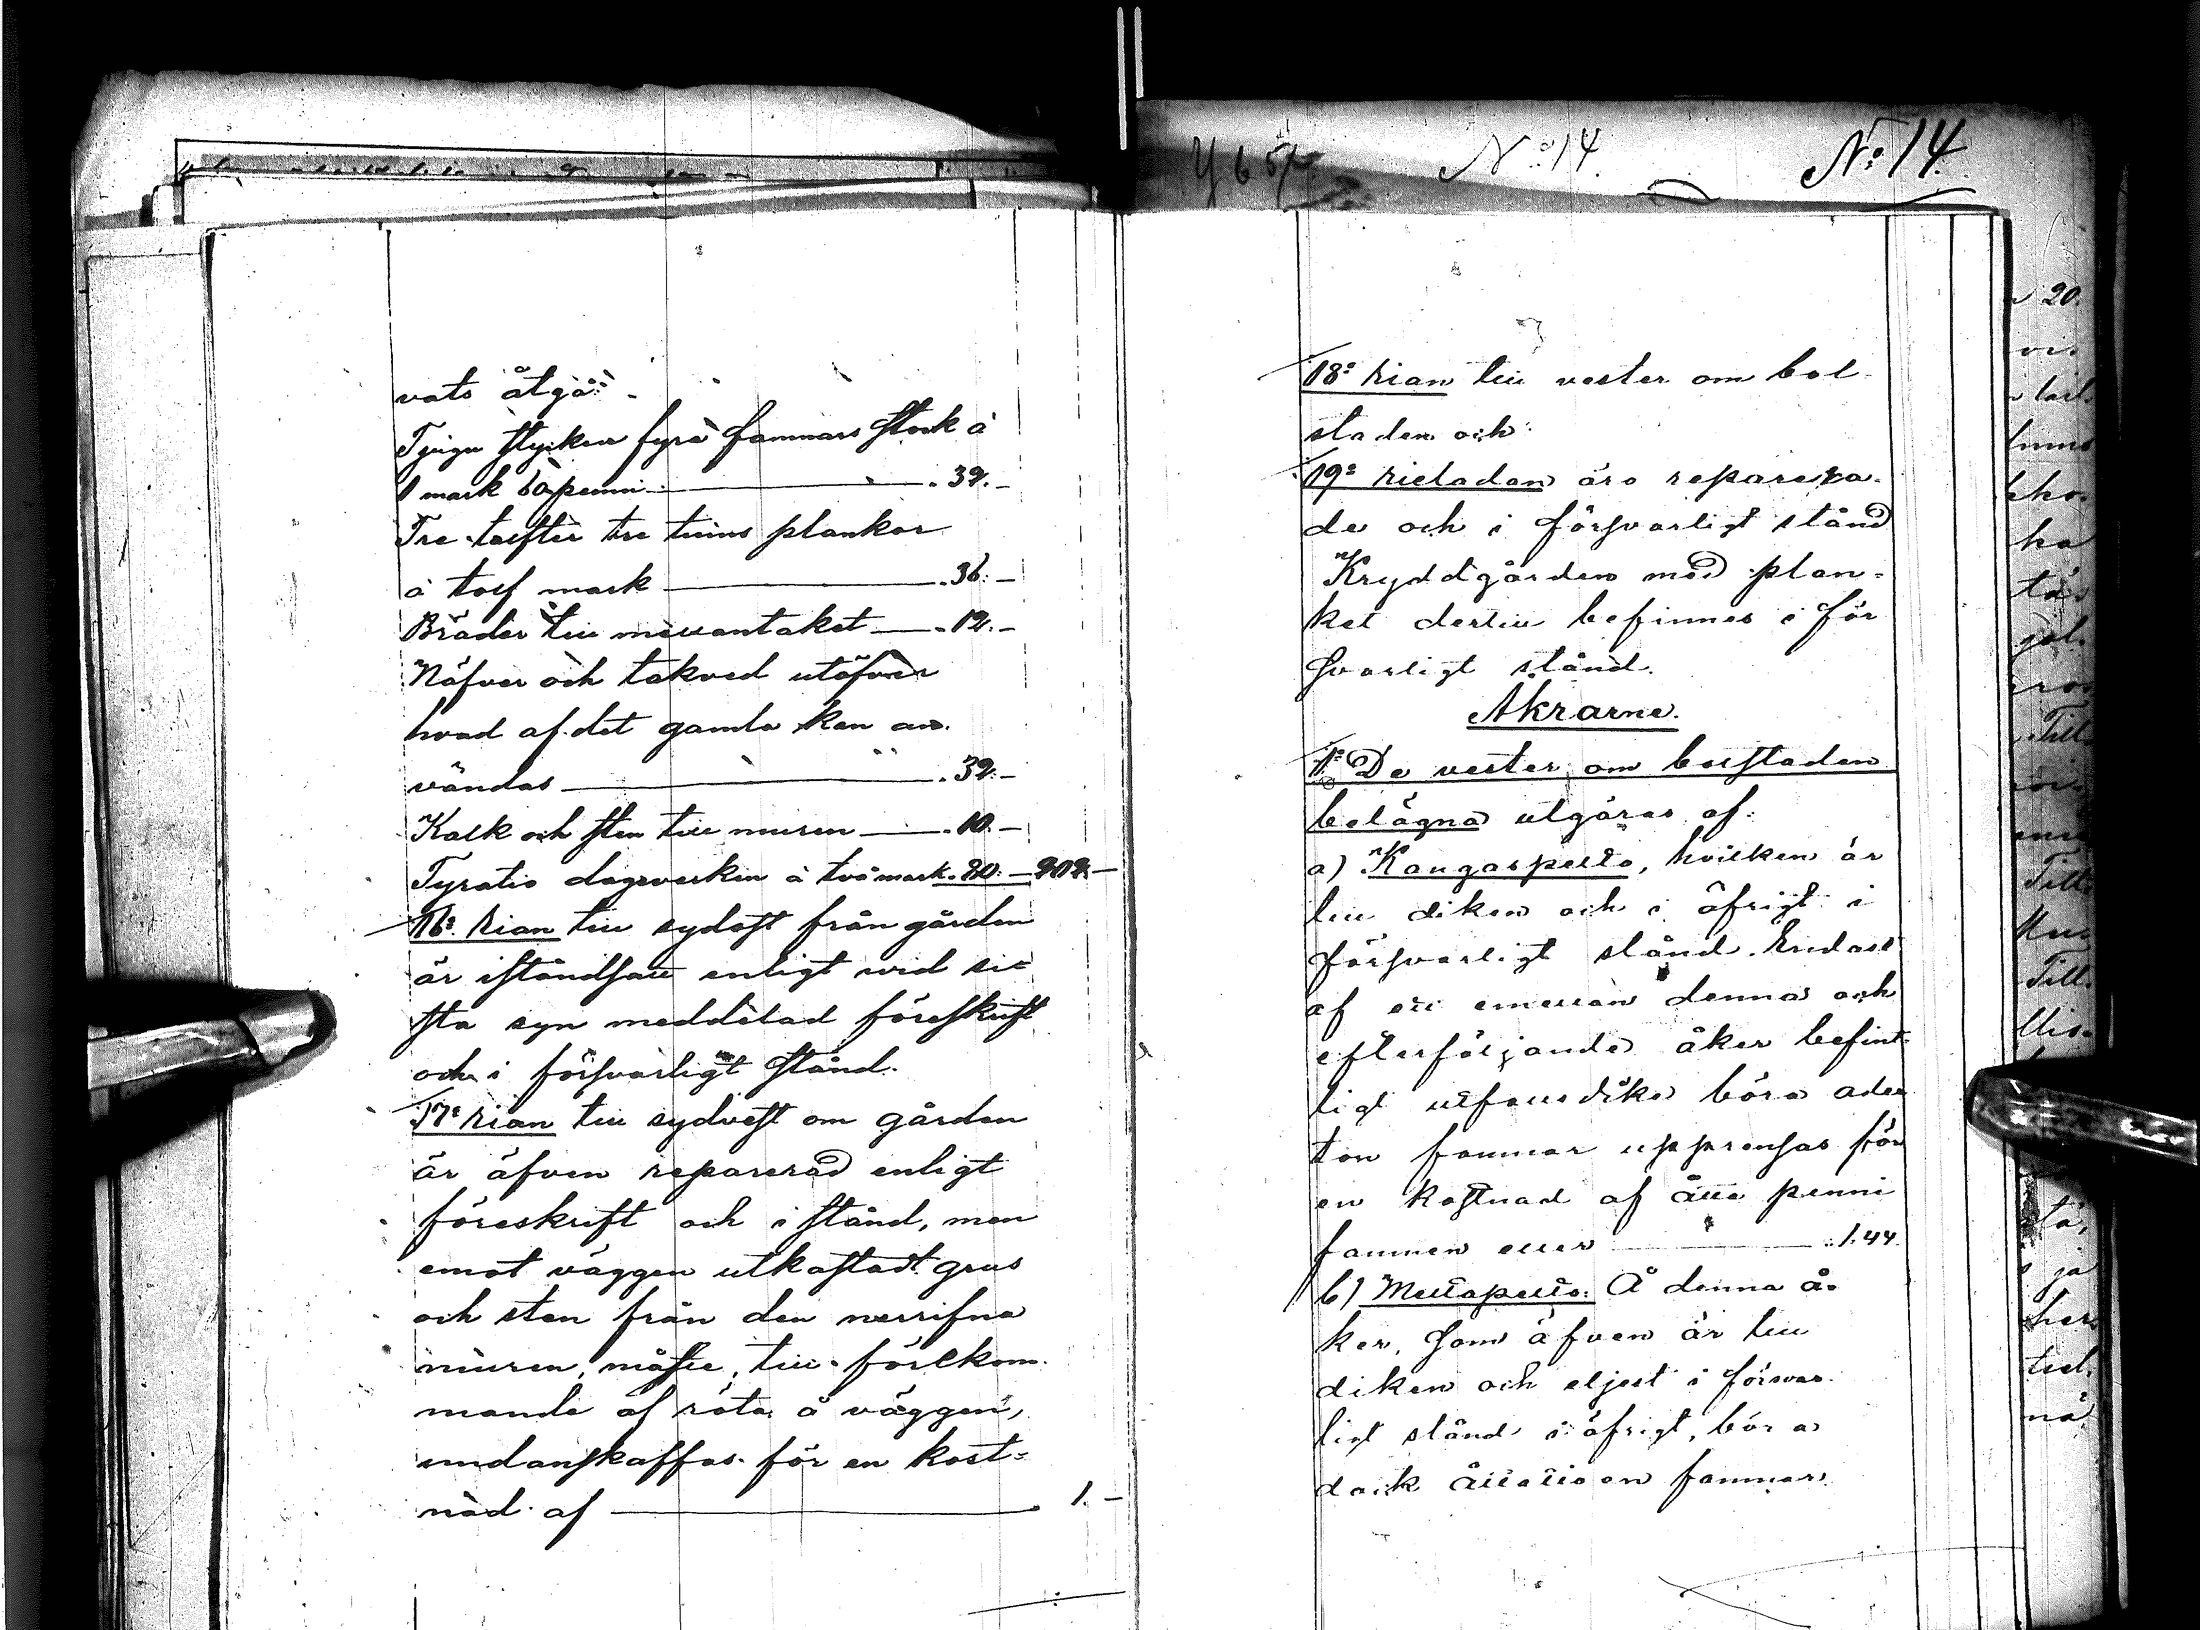 vats åtgå:
Tjugu stycken fyra famnars stock à
1 mark 60 penni . 32. –
Tre tolfter tre tums plankor
à tolf mark . 36: –
Bräder till mellantaket . 12. –
Näfver och takved utöfver
hvad af det gamla kan an-
vändas . 32. –
Kalk och sten till muren . 10. –
Fyratio dagsverken à två mark . 80: – 202. –
16: Rian till sydost från gården
är iståndsatt enligt vid si-
sta syn meddelad föreskrift
och i försvarligt stånd.
17: Rian till sydvest om gården
är äfven reparerad enligt
föreskrift och i stånd, men
emot väggen utkastadt grus
och sten från den nerrifna
muren, måste, till förekom-
mande af röta å väggen,
undanskaffas för en kost-
nad af 1. –
No 14.
No 14.
18: Rian till vester om bol-
staden och
19: rieladan äro reparera-
de och i försvarligt stånd
Kryddgården med plan-
ket dertill befinnes i för
svarligt stånd.
Åkrarne.
1: De vester om bolstaden
belägna utgöras af:
a) Kangaspelto, hvilken är
till diken och i öfrigt i
försvarligt stånd. Endast
af ett emellan denna och
efterföljande åker befint-
ligt utfallsdike böra ader
ton famnar upprensas för
en kostnad af åtta penni
famnen eller . 1.44.
b) Mettäpelto: Å denna å-
ker, som äfven är till
diken och eljest i försvar-
ligt stånd i öfrigt, böra
dock åttatio en famnar